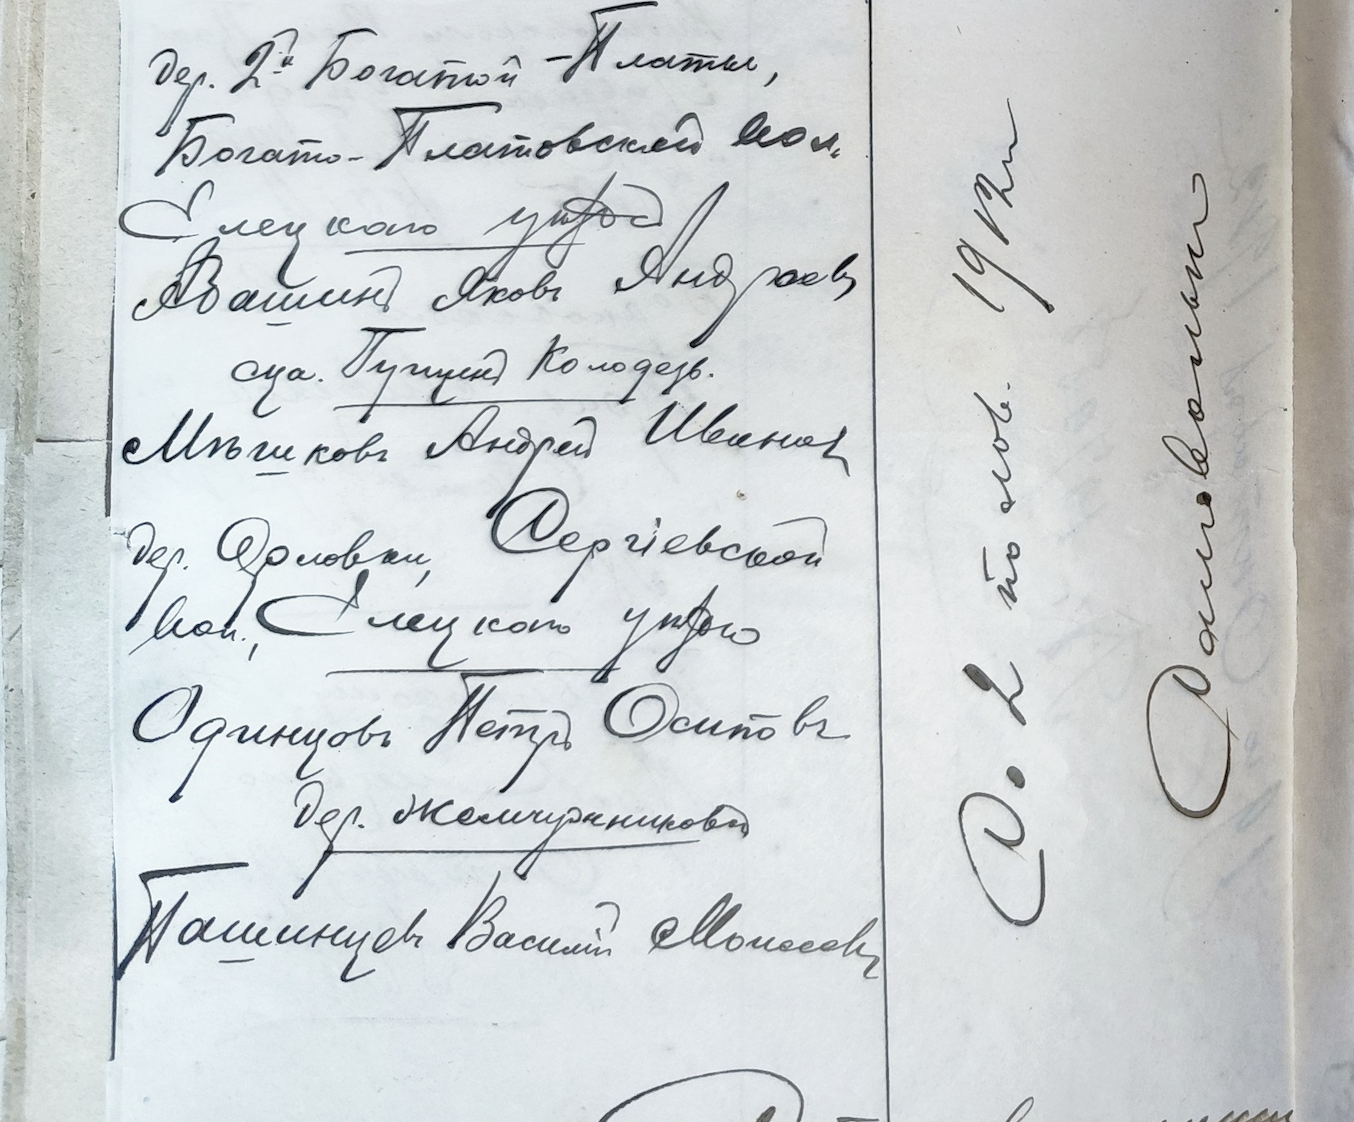 дер. 2й Богатой-Платы,
Богато-Платовской вол.
Елецкаго уѣзда
Авашинъ Яковъ Андреевъ
сца. Пущинъ Колодезь.
Мѣшковъ Андрей Иванов
дер. Орловки, Сергіевской
вол., Елецкаго уѣзда
Одинцовъ Петръ Осиповъ
дер. Жемчужниковой
Пашинцевъ Василій Моисеевъ
2 пол. 1912
Самовольно